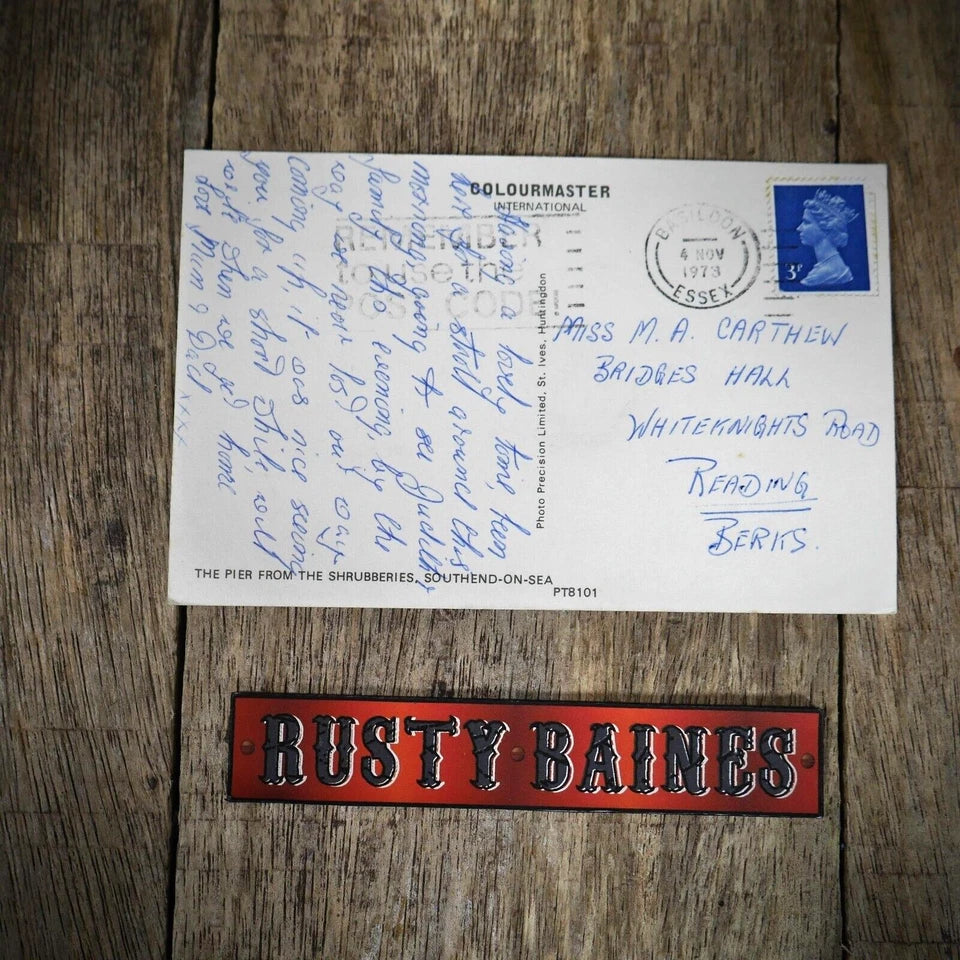 COLOURMASTER
INTERNATIONAL
REMEMBER
to use the
POST CODE!
BASILDON
4 NOV
1973
ESSEX
3P
Having a lovely time, been
with a stroll around this
morning, going to see
Family this evening, by the
way we now on our way
Coming up, it was nice seeing
you for a short while will
write when we get home
love Mum & Dad xxxx
Photo Precision Limited, St. Ives, Huntingdon
MISS M. A. CARTHEW
BRIDGES HALL
WHITEKNIGHTS ROAD
READING
BERKS.
THE PIER FROM THE SHRUBBERIES, SOUTHEND-ON-SEA
PT8101
RUSTY BAINES